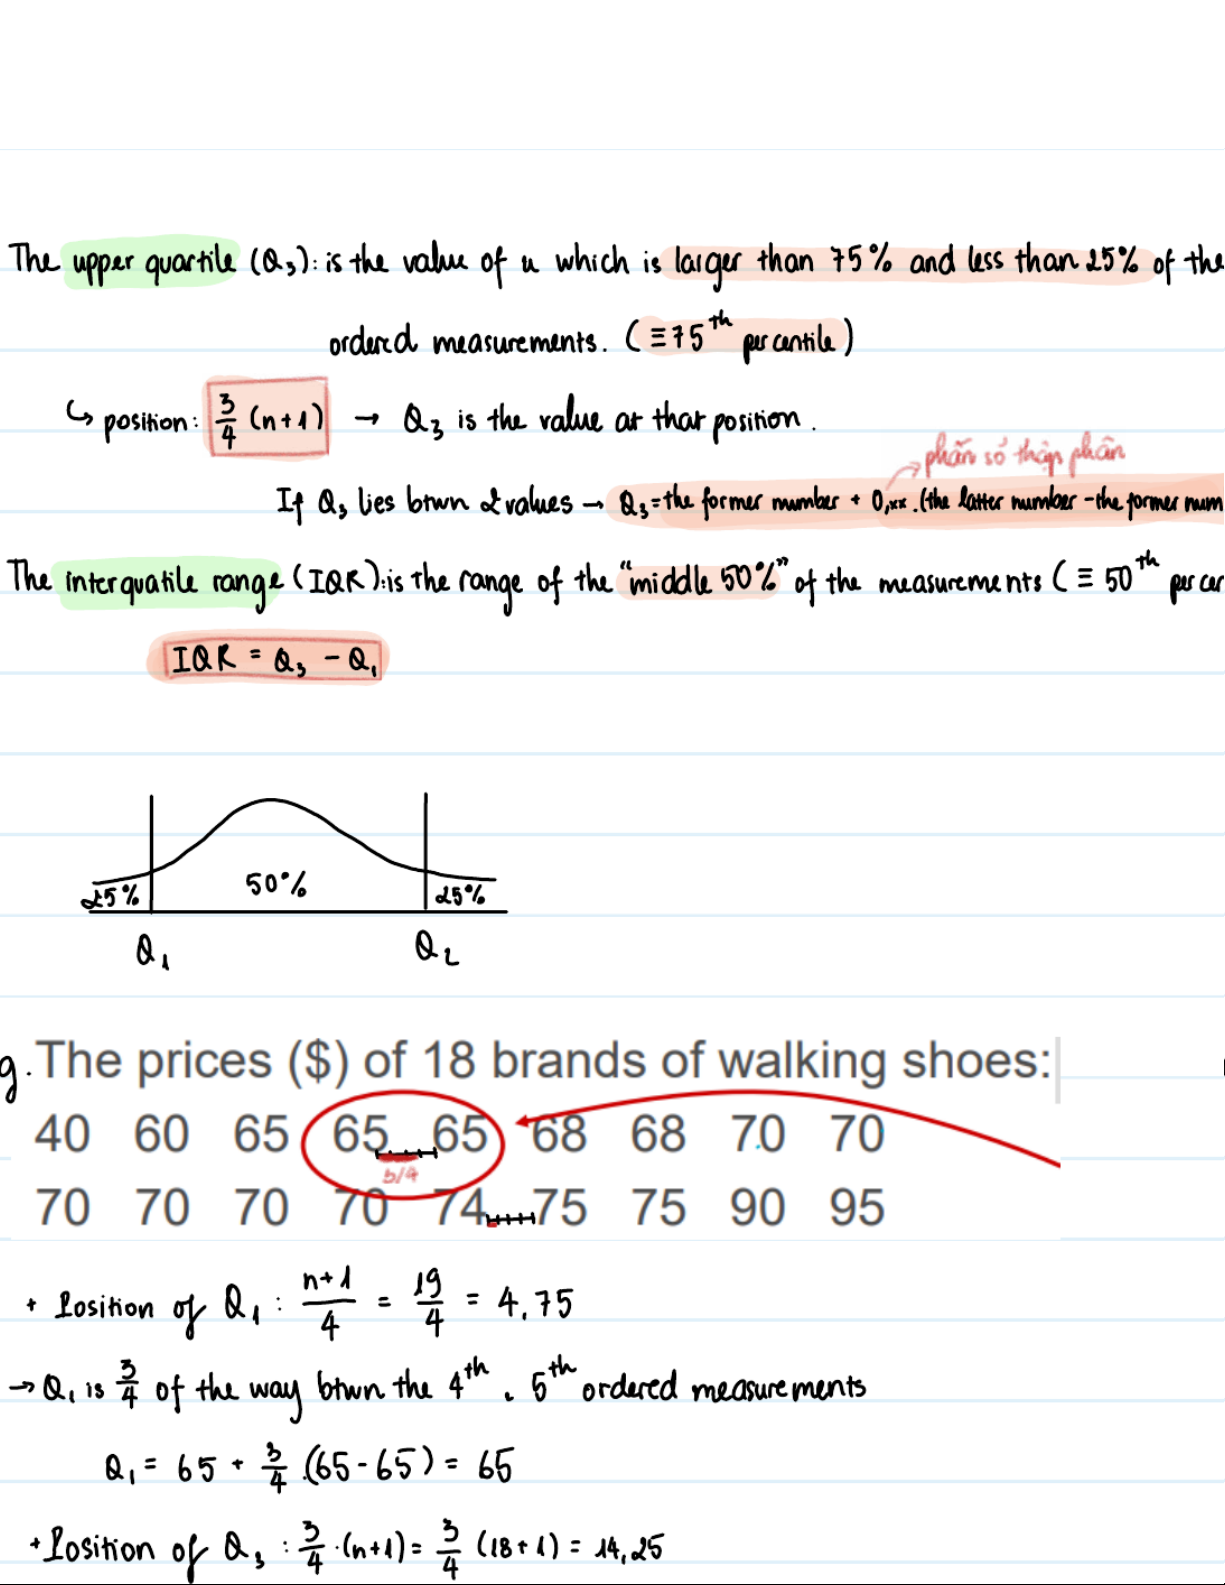 The upper quartile (Q₃): is the value of x which is larger than 75% and less than 25% of the
ordered measurements. (≡ 75th percentile)
↳ position: 3/4 (n+1) → Q₃ is the value at that position.
phần số thập phân
If Q₃ lies btwn 2 values → Q₃ = the former number + 0,xx .(the latter number - the former num
The interquatile range (IQR): is the range of the "middle 50%" of the measurements (≡ 50th per cen
IQR = Q₃ - Q₁
25% 50% 25%
Q₁ Q₂
g. The prices ($) of 18 brands of walking shoes:
40 60 65 65 65 68 68 70 70
3/4
70 70 70 70 74 75 75 90 95
+ Position of Q₁ : n+1/4 = 19/4 = 4,75
→ Q₁ is 3/4 of the way btwn the 4th , 5th ordered measurements
Q₁ = 65 + 3/4 .(65 - 65) = 65
+ Position of Q₃ : 3/4 .(n+1) = 3/4 (18+1) = 14,25